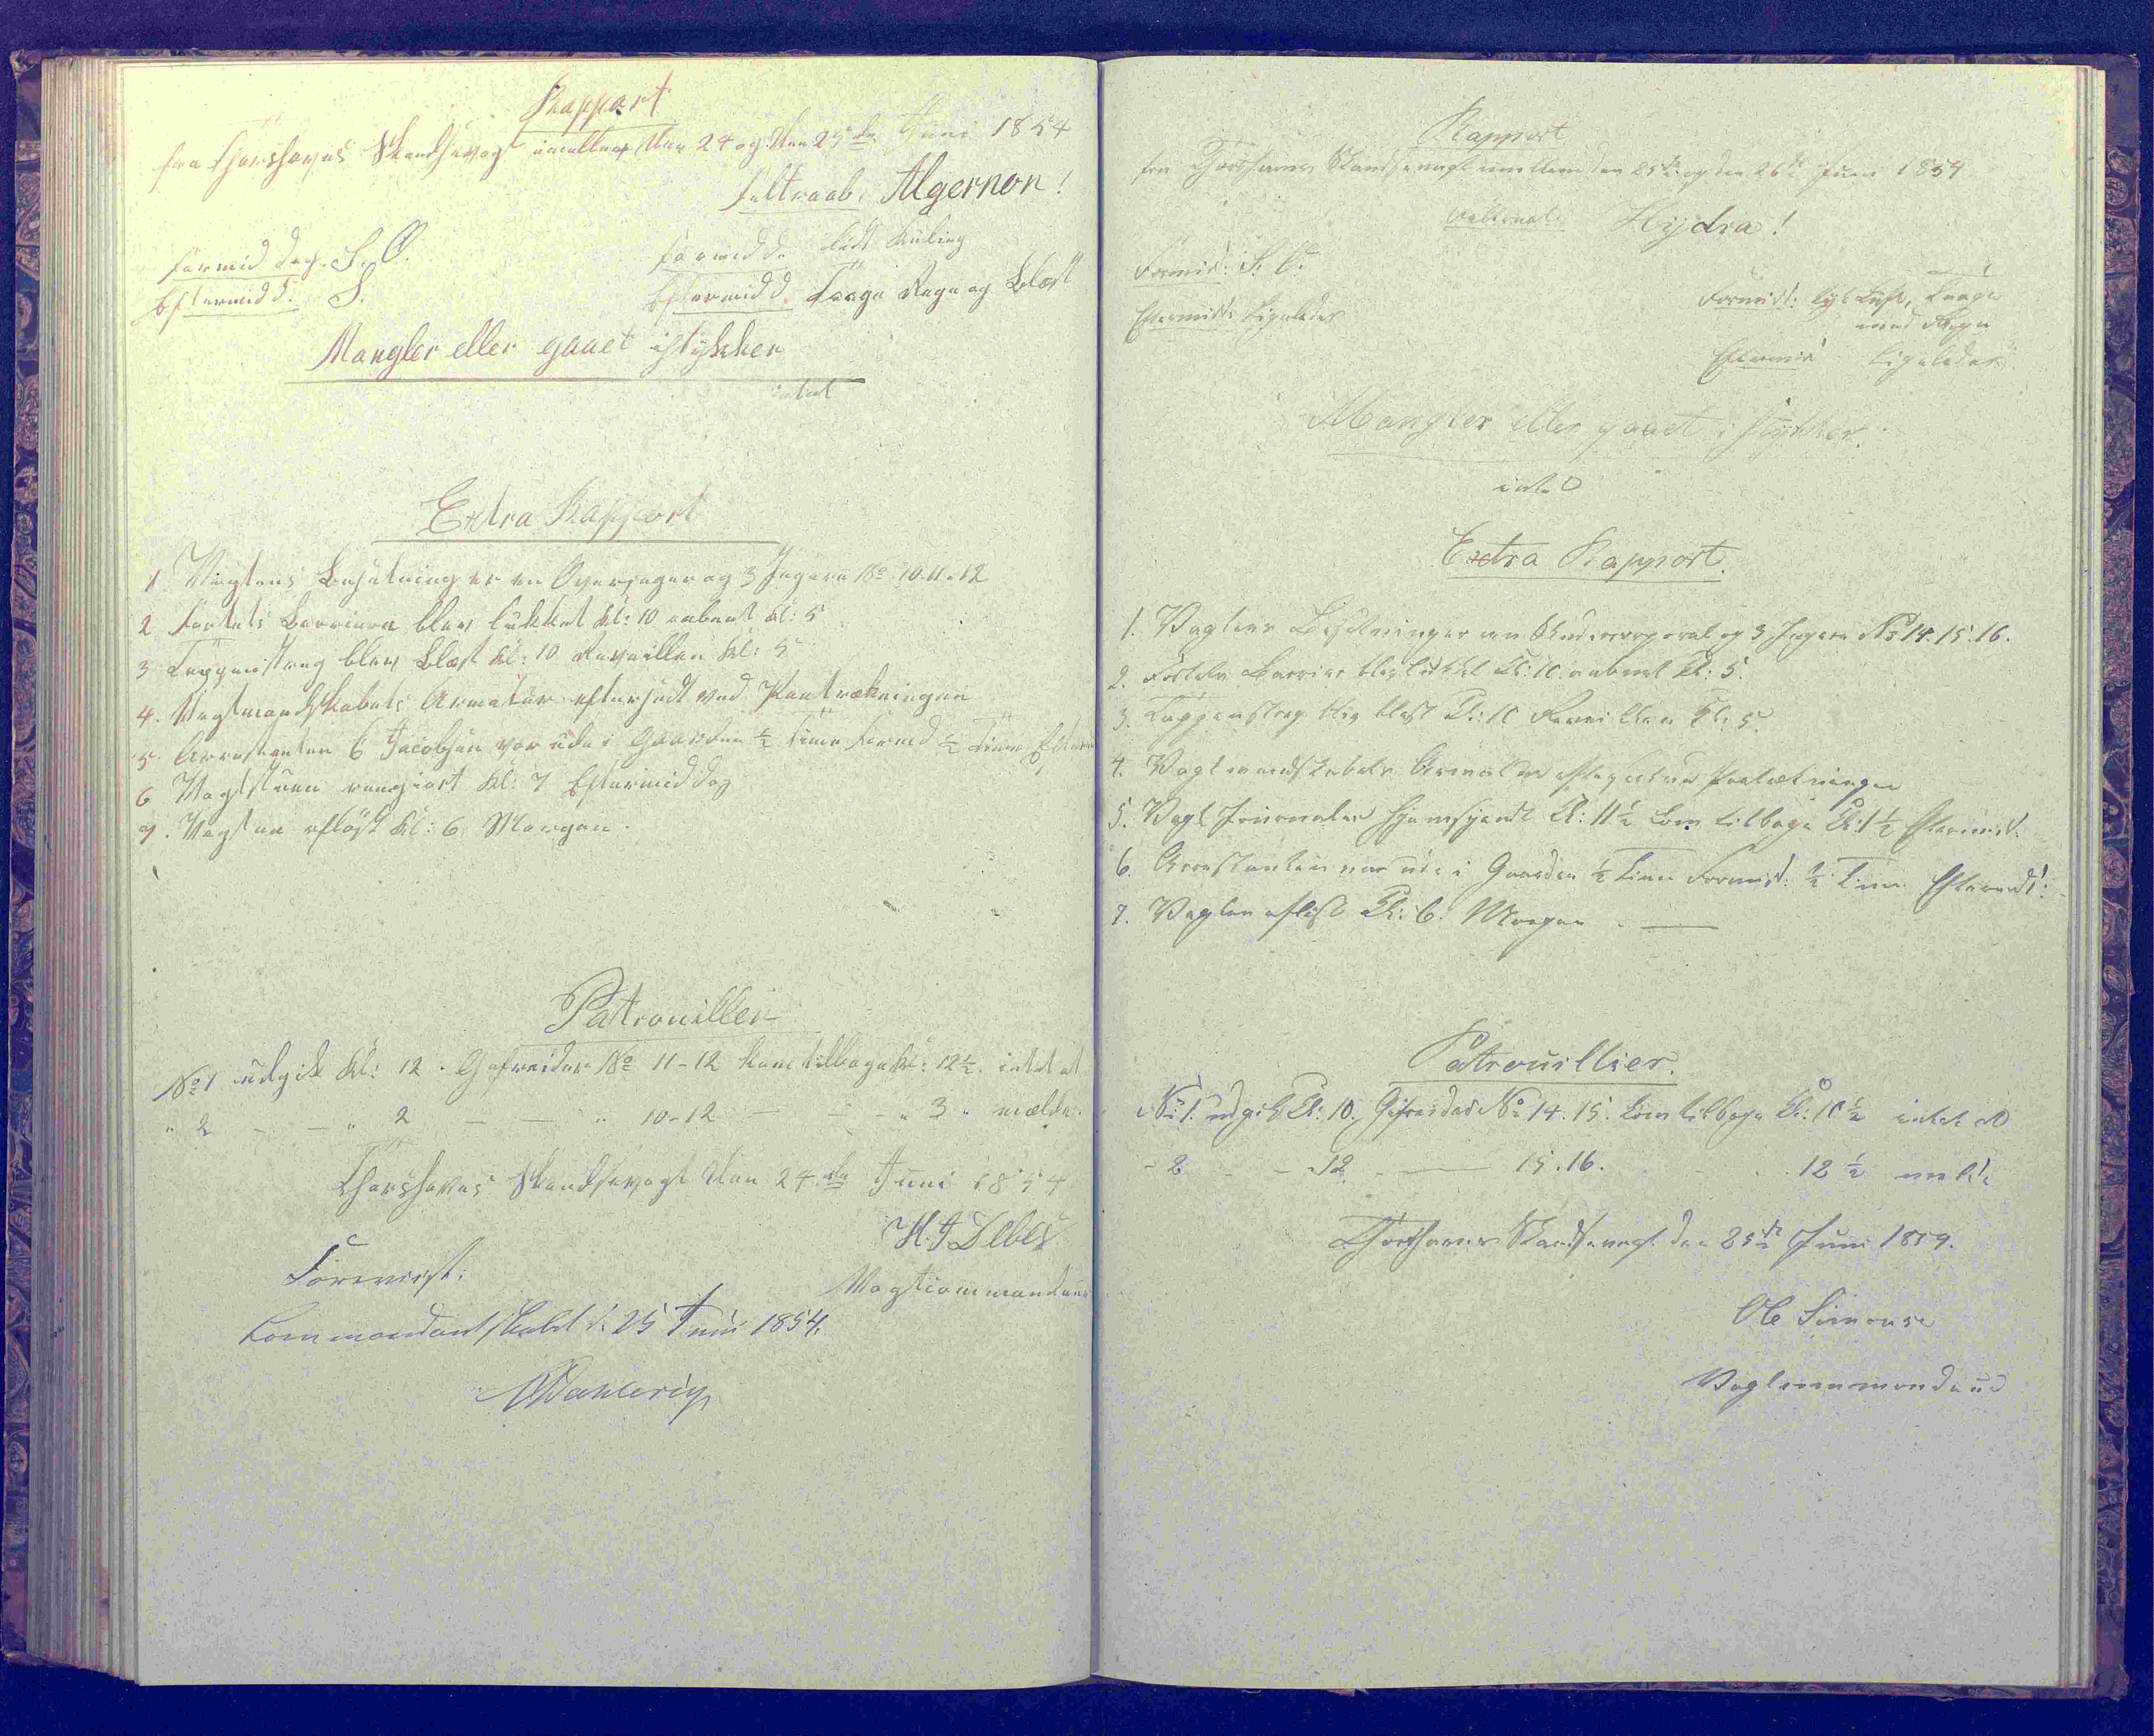 Rapport
fra Thorshavns Skandsevagt imellem den 24 og den 25de Juni 1854
Feltraab. Algernon!
Formiddag. S. O.
Formidd. lidt Kuling
Eftermidd. S.
Eftermidd. Taage Regn og Blæst
Mangler eller gaaet istykker
intet
Extra Rapport
1. Vagtens Besætning er en Overjæger og 3 Jægere No 10.11.12
2. Fortets Barriere blev lukket Kl: 10 aabent Kl: 5
3. Tappenstreg blev blæst Kl: 10 Reveillen Kl: 5
4. Vagtmandskabets Armatur efterseedt ved Paatrækningen
5. Arrestanten E Jacobsen var ude i Gaarden ½ Time Formd ½ Time
6 Vagtstuen rengiort Kl: 7 Eftermiddag
7. Vagten afløst Kl: 6 Morgen.
Patrouiller
No 1 udgik Kl: 12. Gefreider No 11-12 kom tilbage Kl: 12½. intet at
" 2 — — " 2 — — " 10-12 — — - " 3 " mælde.
Thorshavns Skandsevagt den 24de Juni 1854
H. J Debes
Vagtcommandeur
Foreviist.
Commandantskabet d. 25 Juni 1854.
Rapport
fra Thorshavns Skandsevagt imellem den 25de og den 26de Juni 1854
Feltraab. Hydra!
Formid: S. O.
Formid: tyk Luft, Taage
med Regn
Eftermid: ligeledes
Eftermid ligeledes
Mangler eller gaaet i stykker.
intet
Extra Rapport.
1. Vagtens Besætning er en Undercorporal og 3 Jægere No 14. 15. 16.
2. Fortets Barriere blev lukket Kl: 10. aabnet Kl: 5.
3. Tappenstreg blev blæst Kl: 10 Reveillen Kl: 5.
4. Vagtmandskabets Armatur efterseet ved Paatrækningen
5. Vagt Journalen hjemsendt Kl: 11½ kom tilbage Kl: 1½ Eftermid.
6. Arrestanten var ude i Gaarden ½ Time Formid: ½ Time Eftermd:
7. Vagten afløst Kl: 6. Morgen. —
Patrouillier.
No 1. udgik Kl: 10. Gefreider No 14. 15. kom tilbage Kl: 10½ intet at
- 2 - - - 12. — 15. 16. - - 12½ melde
Thorshavns Skandsevagt. den 25de Juni 1854.
Ole Simonse
Vagtcommandeur